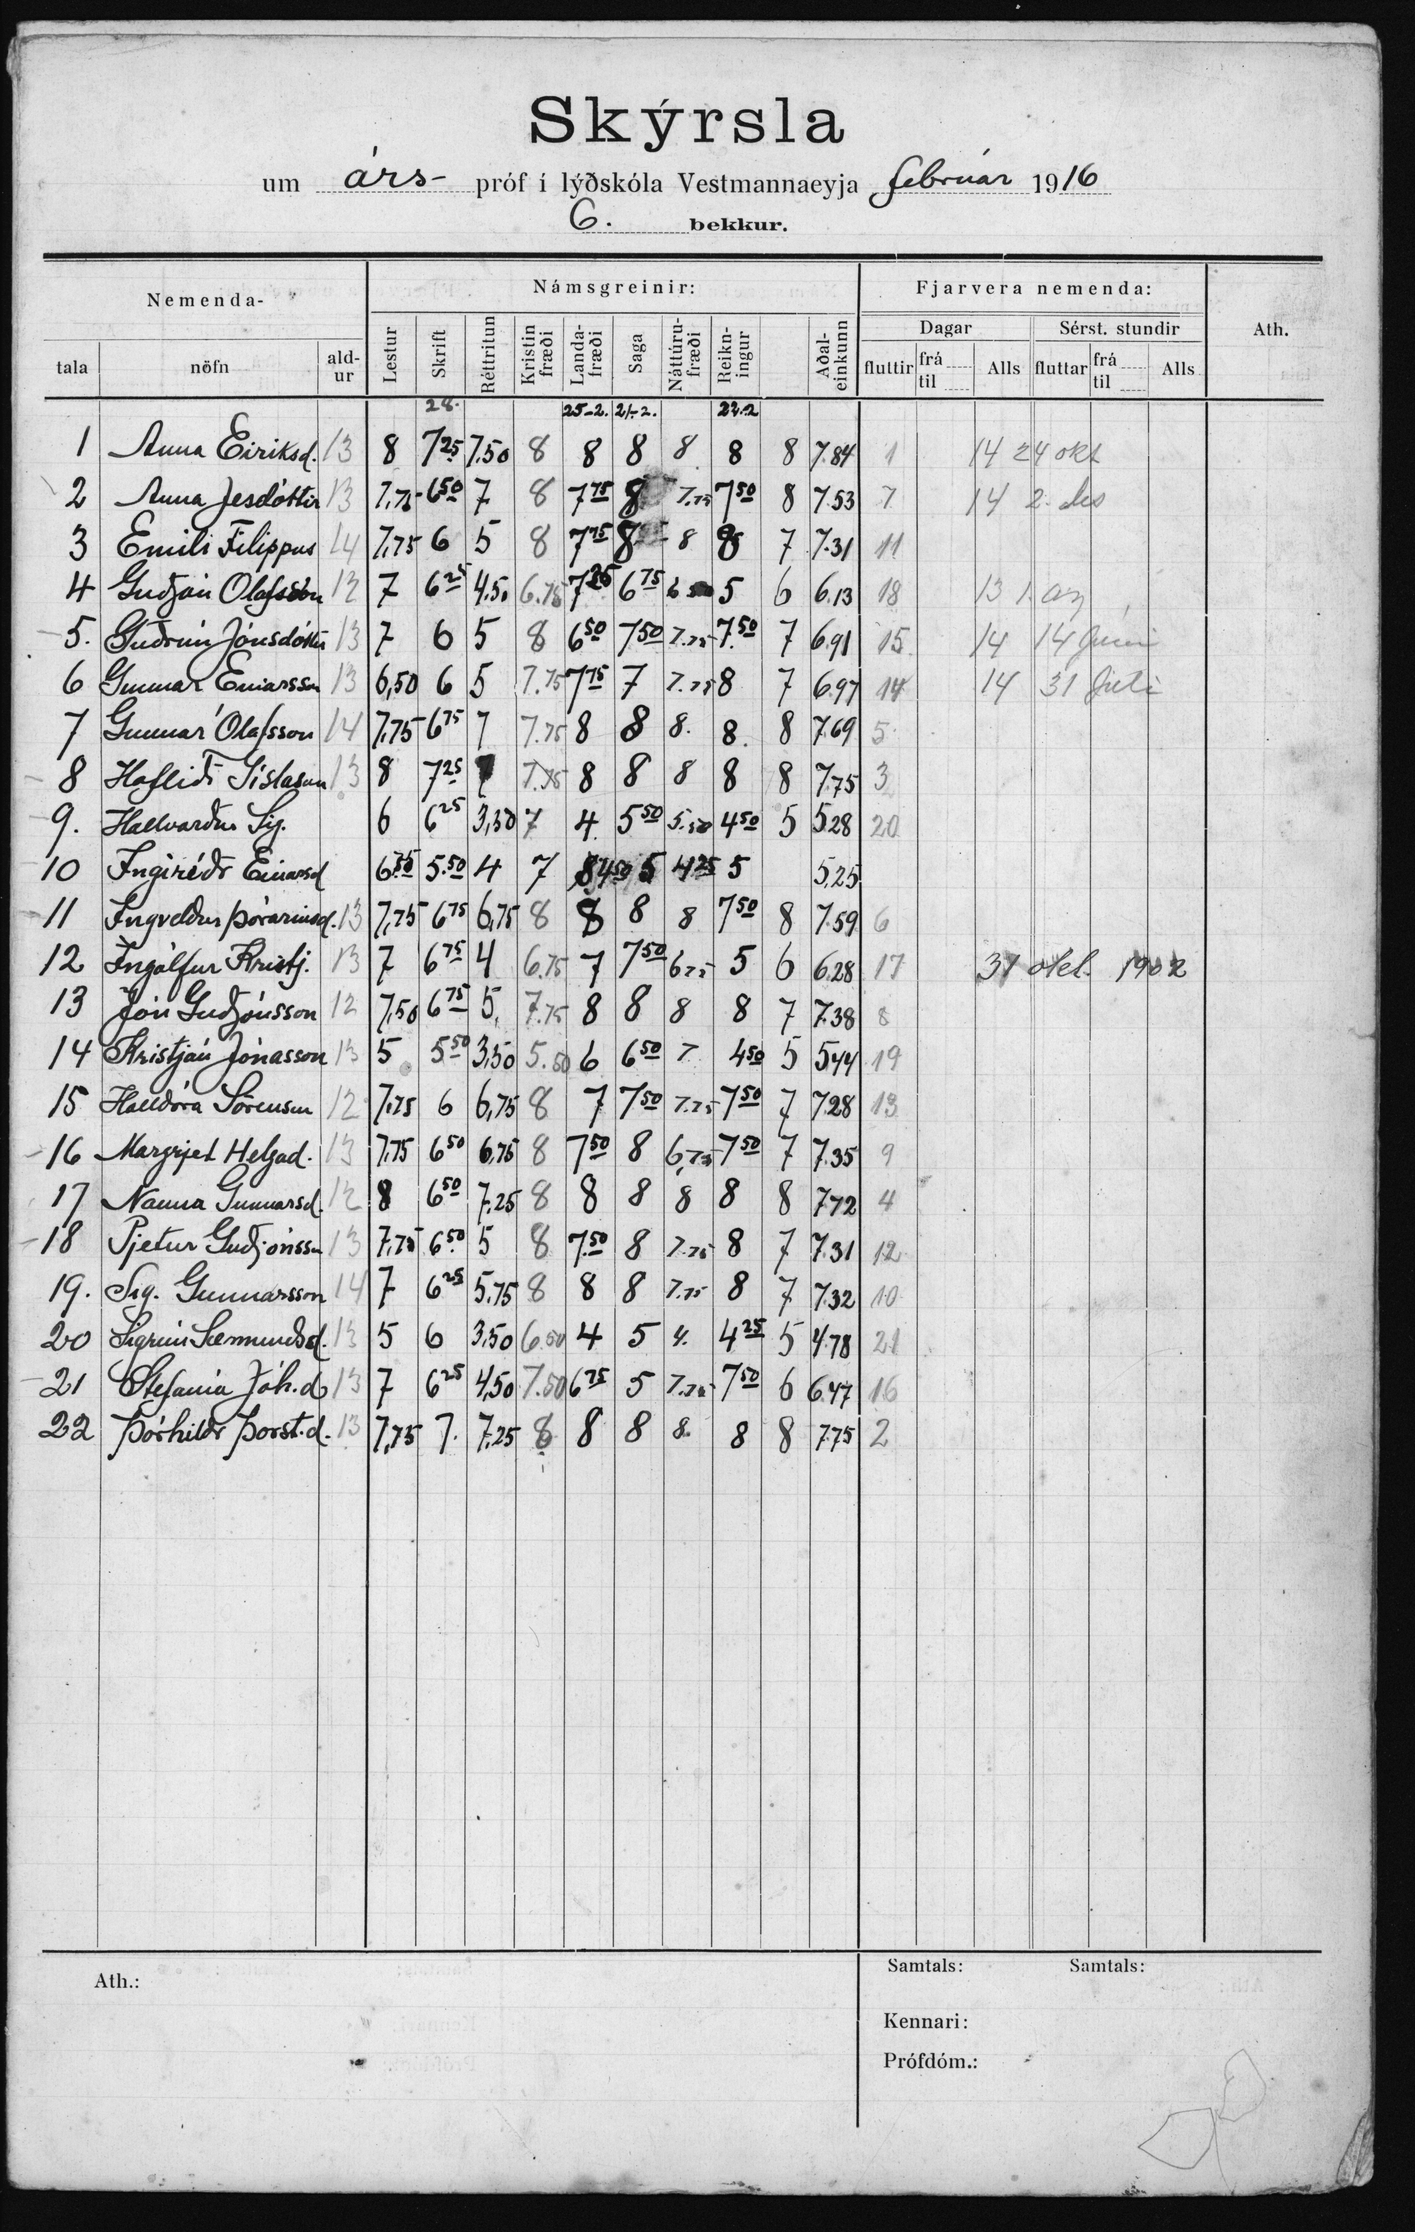 Skýrsla
um árs- próf í lýðskóla Vestmannaeyja febrúar 1916
6. bekkur.
Nemenda- Námsgreinir: Fjarvera nemenda: Ath.
Dagar Sérst. stundir
tala nöfn ald-ur Lestur Skrift Réttritun Kristin fræði Landa-fræði Saga Náttúru-fræði Reikn-ingur Aðal-einkunn fluttir frá til Alls fluttar frá til Alls
28. 25-2. 21.-2. 22.2
1 Anna Eiriksd. 13 8 7 25 7.50 8 8 8 8 8 8 7.84 1 14 24 okt
2 Anna Jesdóttir 13 7,75 6 50 7 8 7 75 8 7.75 7 50 8 7.53 7 14 2. des
3 Emili Filippus 14 7,75 6 5 8 7 75 8 8 8 7 7.31 11
4 Guðjón Olafsson 12 7 6 25 4.50 6.75 7 25 6 75 6 5 6 6.13 18 13 1.
5. Guðrún Jónsdóttir 13 7 6 5 8 6 50 7 50 7.75 7.50 7 6.91 15 14 14 Juni
6 Gunnar Einarsson 13 6,50 6 5 7.75 7 75 7 7.75 8 7 6.97 14 14 31 Juli
7 Gunnar Ólafsson 14 7,75 6 75 7 7.75 8 8 8. 8. 8 7.69 5
8 Hafliði Gíslason 13 8 7 25 7.75 8 8 8 8 8 7.75 3
9. Hallvarður Sig. 6 6 25 3,50 7 4 5 50 5.50 4 50 5 5.28 20
10 Ingiríðr Einarsd 5.50 4 7 4 50 5 4 25 5 5.25
11 Ingveldur Þórarinsd. 13 7,75 6 75 6,75 8 8 8 8 7 50 8 7.59 6
12 Ingólfur Kristj. 13 7 6 75 4 6.75 7 7 50 6 75 5 6 6.28 17 31 okt. 1902
13 Jón Guðjónsson 12 7,50 6 75 5, 7.75 8 8 8 8 7 7.38 8
14 Kristján Jónasson 13 5 5 50 3,50 5.50 6 6 50 7 4 50 5 5 44 19
15 Halldóra Sörensen 12 7.75 6 6,75 8 7 7 50 7.75 7 50 7 7.28 13
16 Margrjet Helgad. 13 7,75 6 50 6,75 8 7 50 8 6,75 7 50 7 7.35 9
17 Nanna Gunnarsd. 12 8 6 50 7,25 8 8 8 8 8 8 7.72 4
18 Pjetur Guðjónsson 13 7,75 6 50 5 8 7.50 8 7.75 8 7 7.31 12
19. Sig. Gunnarsson 14 7 6 25 5,75 8 8 8 7.75 8 7 7.32 10
20 Sigrún Sæmundsd. 13 5 6 3,50 6.50 4 5 4. 4 25 5 4.78 21
21 Stefania Jóh.d 13 7 6 25 4,50 7.50 6 75 5 7.75 7 50 6 6.47 16
22 Þórhildr Þorst.d. 13 7,75 7. 7,25 8 8 8 8. 8 8 7.75 2
Ath.: Samtals: Samtals:
Kennari:
Prófdóm.: